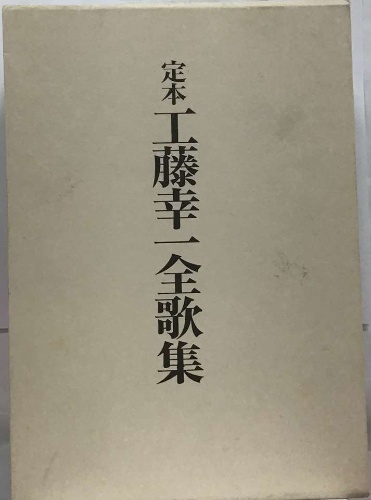 定本 工藤幸一全歌集